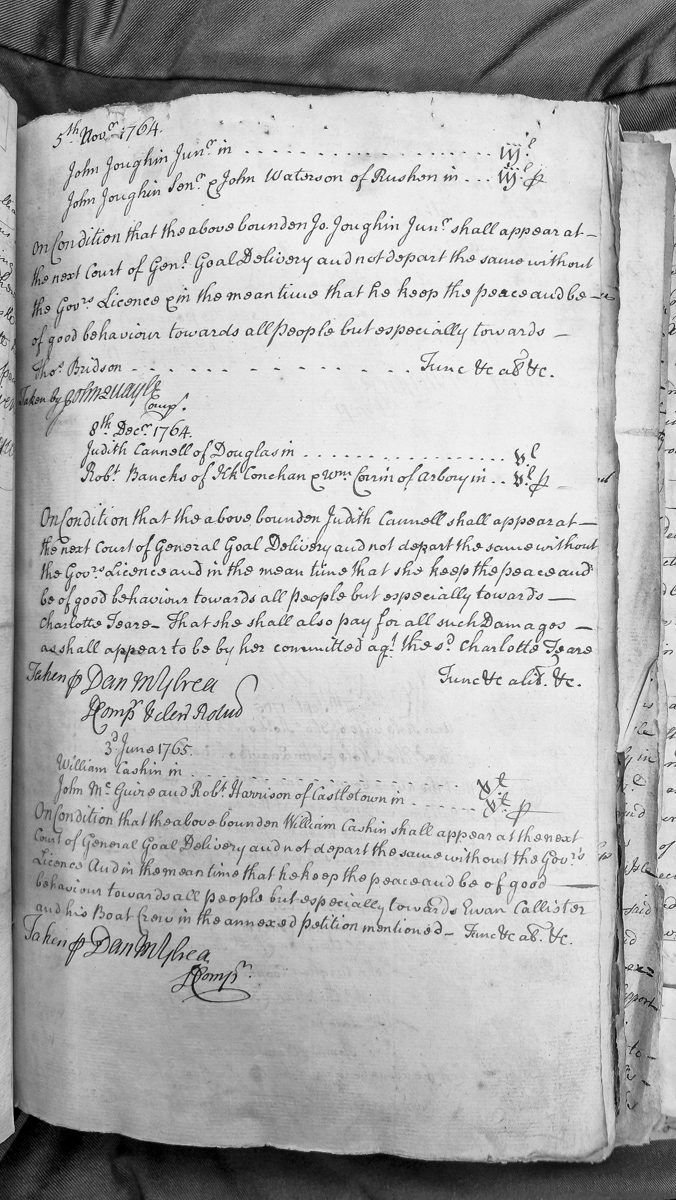 5th Novr. 1764.
John Joughin Junr. in . . . . . . . . . . . . . . . . . iij.l
John Joughin Senr. & John Waterson of Rushen in . . . iij.l ⅌
On Condition that the above bounden Jo. Joughin Junr. shall appear at —
the next Court of Genl. Goal Delivery and not depart the same without
the Govrs. Licence & in the meantime that he keep the peace and be —
of good behaviour towards all People but especially towards —
Thos. Bridson - - - - - - - - - - - - - - Tunc &c alr. &c.
Taken by John Quayle
Compr.
8th Decr. 1764.
Judith Cannell of Douglas in . . . . . . . . . . . . . . . . . v.l
Robt. Bancks of Kk Conchan & Wm. Corrin of Arbory in . . v.l ⅌
On Condition that the above bounden Judith Cannell shall appear at —
the next Court of General Goal Delivery and not depart the same without
the Govrs. Licence and in the mean time that she keep the peace and
be of good behaviour towards all People but especially towards —
Charlotte Teare — That she shall also pay for all such Damages —
as shall appear to be by her committed agt. the sd. Charlotte Teare
Tunc &c alitr. &c.
Taken ⅌ Dan Mylrea
Compr & Cler Rolur
3d June 1765.
William Cashin in . . . . . . . . . . . . . . . . . v.l
John Mc. Guire and Robt. Harrison of Castletown in . . . . . . v.l ⅌
On Condition that the above bounden William Cashin shall appear at the next
Court of General Goal Delivery and not depart the same without the Govr's
Licence And in the mean time that he keep the peace and be of good —
behaviour towards all People but especially towards Ewan Callister
and his Boat Crew in the annexed Petition mentioned — Tunc &c alr. &c.
Taken ⅌ Dan Mylrea
Compr.